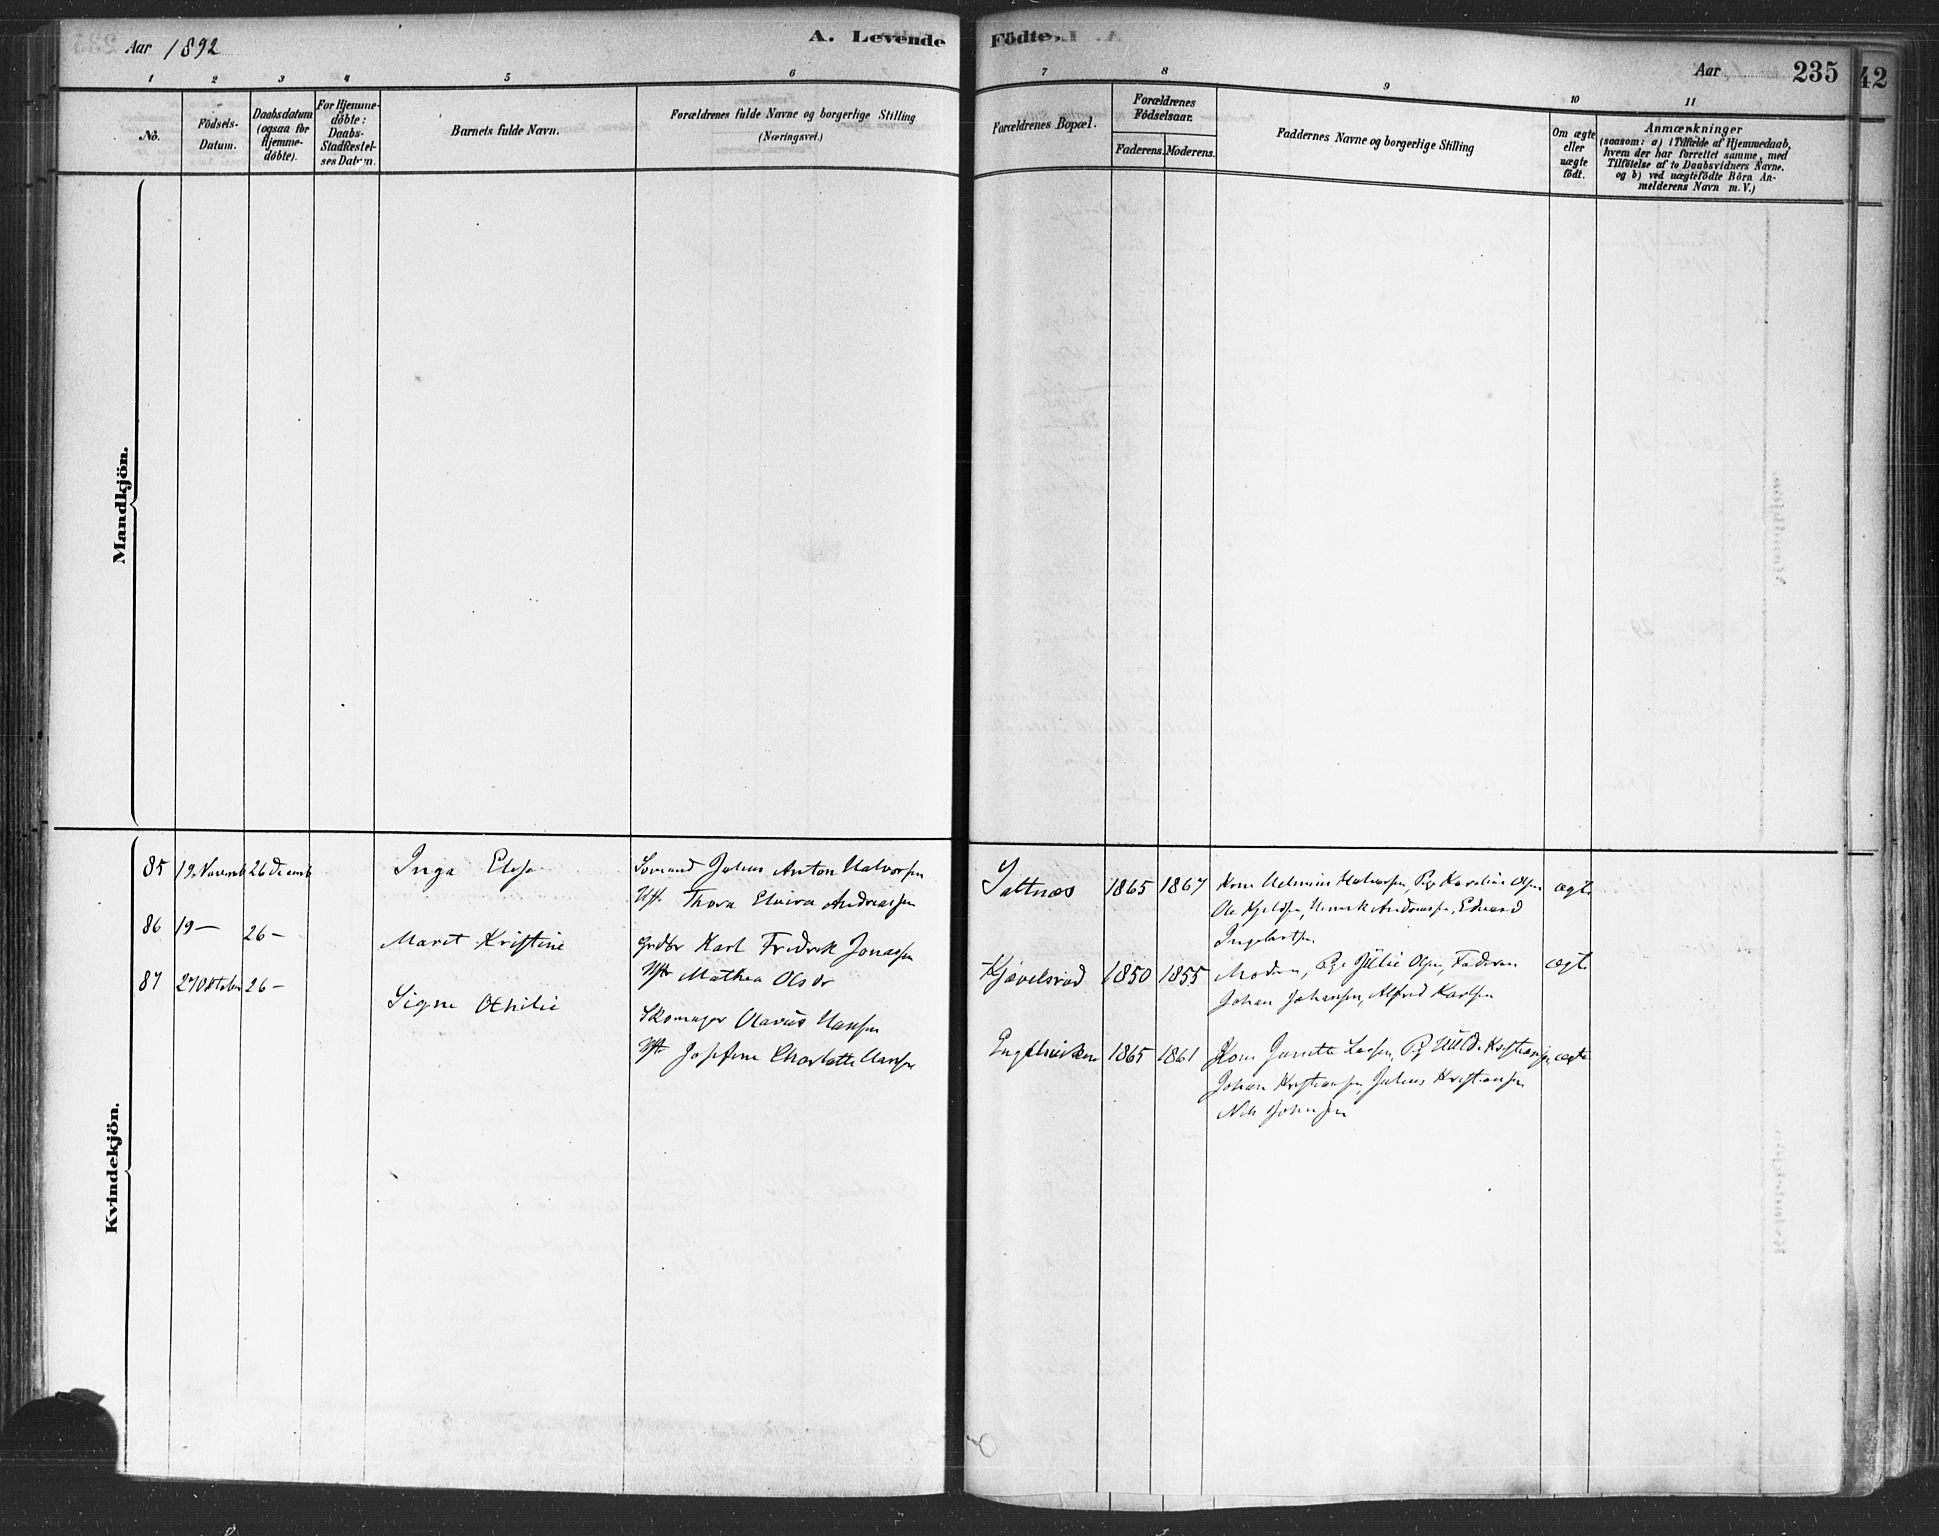 Aar 1892
A. Levende
Födte.
Aar
235
42
1 2 3 4 5 6 7 8 9 10 11
No.
Födsels-
Datum.
Daabsdatum
(ogsaa for
Hjemme-
döbte).
For Hjemme-
döbte:
Daabs-
Stadfæstel-
ses Datum.
Barnets fulde Navn.
Forældrenes fulde Navne og borgerlige Stilling
(Næringsvei.)
Forældrenes Bopæl.
Forældrenes
Födselsaar.
Faderens. Moderens.
Faddernes Navne og borgerlige Stilling
Om ægte
eller
uægte
födt.
Anmærkninger
(saasom: a) i Tilfælde af Hjemmedaab,
hvem der har forrettet samme, med
Tilföielse af to Daabsvidners Navne.
og b) ved uægtefödte Börn An-
melderens Navn m. V.)
Mandkjön.
Kvindekjön.
85 19 Novemb 26 Decemb Inga Elise
Sömand Julius Anton Halvorsen
Hst Thora Elvira Andreassen
Saltnæs 1865 1867
Kone Helmine Halvorsen, Pige Karoline Olsen
Ole Kjeldsen, Henrik Andreassen, Edvard
Ingebretsen
ægte
86 19 — 26 — Marit Kristine
Grdbr Karl Fredrik Jonassen
Hst Mathea Olsdr
Kjøvelsrød 1850 1855
Moderen, Pige Julie Olsen, Faderen
Johan Johansen, Alfred Karlsen
ægte
87 27 Oktober 26 — Signe Othilie
Skomager Olavus Hansen
Hst Josefine Charlotte Hansen
Engelsviken 1865 1861
Kone Larsen, Pige Kristiansen
Johan Kristiansen, Julius Kristiansen
Nils Johnsen
ægte